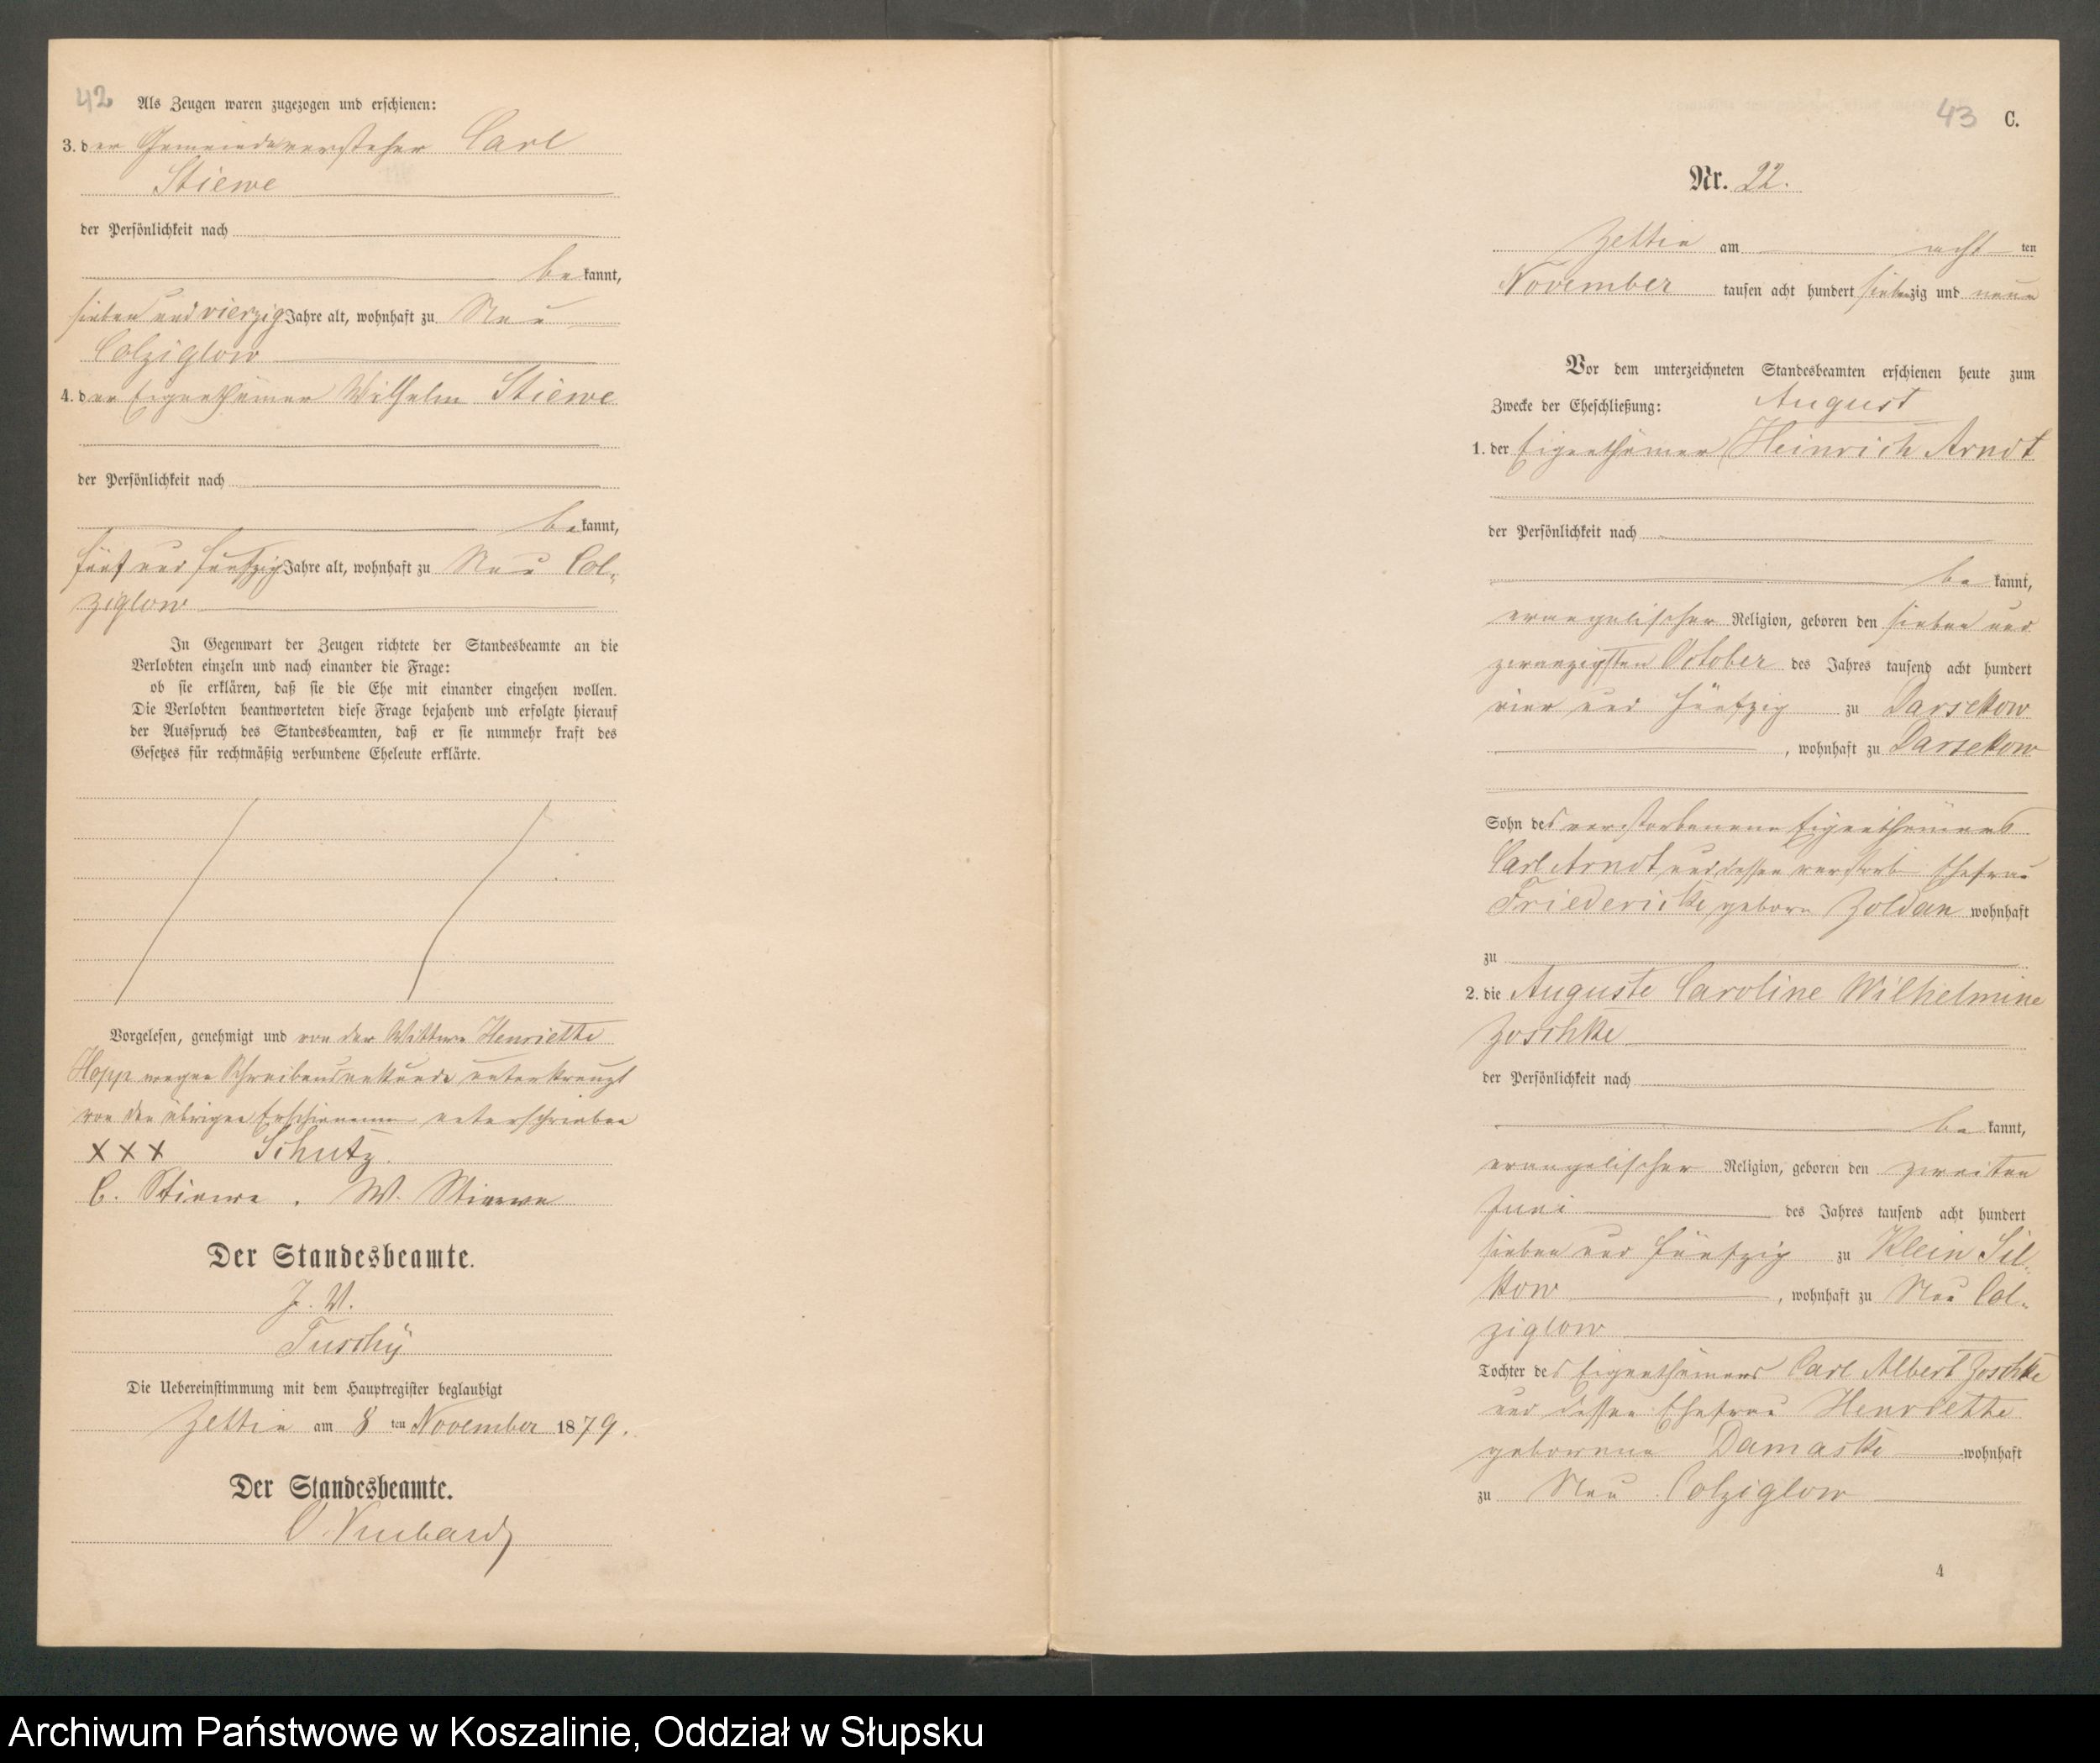 42
Als Zeugen waren zugezogen und erschienen:
3. der Gemeindevorsteher Carl
Stiewe
der Persönlichkeit nach
bekannt,
sieben und vierzig Jahre alt, wohnhaft zu Neu
Colziglow
4. der Eigenthümer Wilhelm Stiewe
der Persönlichkeit nach
bekannt,
fünf und fünfzig Jahre alt, wohnhaft zu Neu Col-
ziglow
In Gegenwart der Zeugen richtete der Standesbeamte an die
Verlobten einzeln und nach einander die Frage:
ob sie erklären, daß sie die Ehe mit einander eingehen wollen.
Die Verlobten beantworteten diese Frage bejahend und erfolgte hierauf
der Ausspruch des Standesbeamten, daß er sie nunmehr kraft des
Gesetzes für rechtmäßig verbundene Eheleute erklärte.
Vorgelesen, genehmigt und von der Wittwe Henriette
Hopp wegen Schreibensunkunde unterkreuzt
von den übrigen Erschienenen unterschrieben
XXX Schutz.
C. Stiewe. W. Stiewe
Der Standesbeamte.
J. V.
Tuschÿ
Die Uebereinstimmung mit dem Hauptregister beglaubigt
Zettin am 8 ten November 1879.
Der Standesbeamte.
43 C.
Nr. 22.
Zettin am acht ten
November tausen acht hundert siebenzig und neun
Vor dem unterzeichneten Standesbeamten erschienen heute zum
Zwecke der Eheschließung: August
1. der Eigenthümer Heinrich Arndt
der Persönlichkeit nach
bekannt,
evangelischer Religion, geboren den sieben und
zwanzigsten October des Jahres tausend acht hundert
vier und fünfzig zu Darsekow
, wohnhaft zu Darsekow
Sohn des verstorbenenen Eigenthümers
Carl Arndt und dessen verstorb Ehefrau
Friedericke geborn Zoldan wohnhaft
zu
2. die Auguste Caroline Wilhelmine
Zoschke
der Persönlichkeit nach
bekannt,
evangelischer Religion, geboren den zweiten
Juni des Jahres tausend acht hundert
sieben und fünfzig zu Klein Sil-
kow , wohnhaft zu Neu Col-
ziglow
Tochter des Eigenthümers Carl Albert Zoschke
und dessen Ehefrau Henriette
geborene Damaske wohnhaft
zu Neu Colziglow
4
Archiwum Państwowe w Koszalinie, Oddział w Słupsku